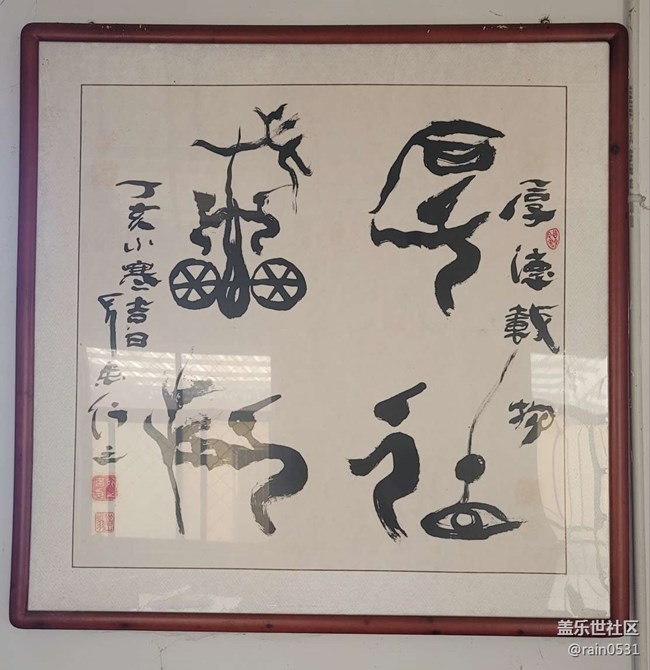 厚德載物
厚德載物
丁亥小寒吉日
盖乐世社区
@rain0531